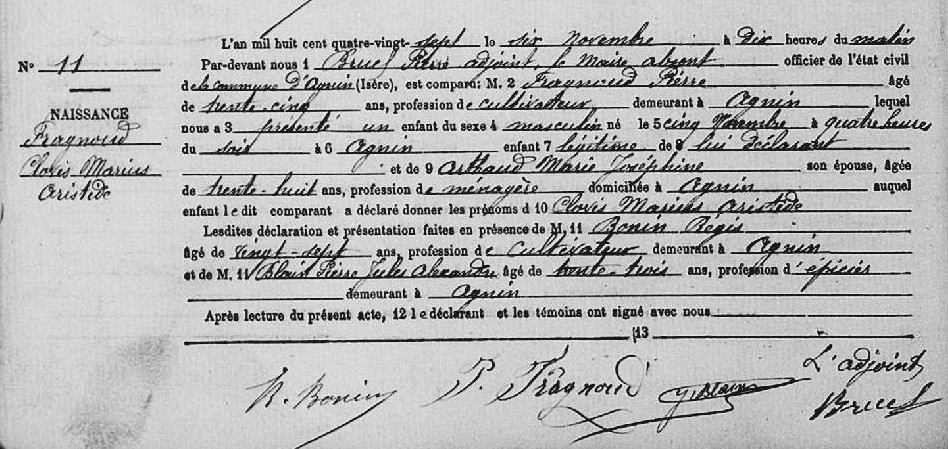 N° 11
NAISSANCE
Fragnoud
Clovis Marius
Aristide
L'an mil huit cent quatre-vingt-sept le six novembre à dix heures du matin
Par-devant nous 1 Bruel Pierre adjoint, le Maire absent officier de l'état civil
de la commune d'Agnin (Isère), est comparu: M. 2 Fragnoud Pierre âgé
de trente-cinq ans, profession de cultivateur demeurant à Agnin lequel
nous a 3 présenté un enfant du sexe 4 masculin né le 5 cinq novembre à quatre heures
du soir à 6 Agnin enfant 7 légitime de 8 lui déclarant
et de 9 Arthaud Marie Joséphine son épouse, âgée
de trente-huit ans, profession de ménagère domiciliée à Agnin auquel
enfant le dit comparant a déclaré donner les prénoms d 10 Clovis Marius Aristide
Lesdites déclaration et présentation faites en présence de M. 11 Bonin Régis
âgé de vingt-sept ans, profession de cultivateur demeurant à Agnin
et de M. 11 Blain Pierre Jules Alexandre âgé de trente-trois ans, profession d'épicier
demeurant à Agnin
Après lecture du présent acte, 12 le déclarant et les témoins ont signé avec nous
13
R. Bonin P. Fragnoud J. Blain L'adjoint
Bruel